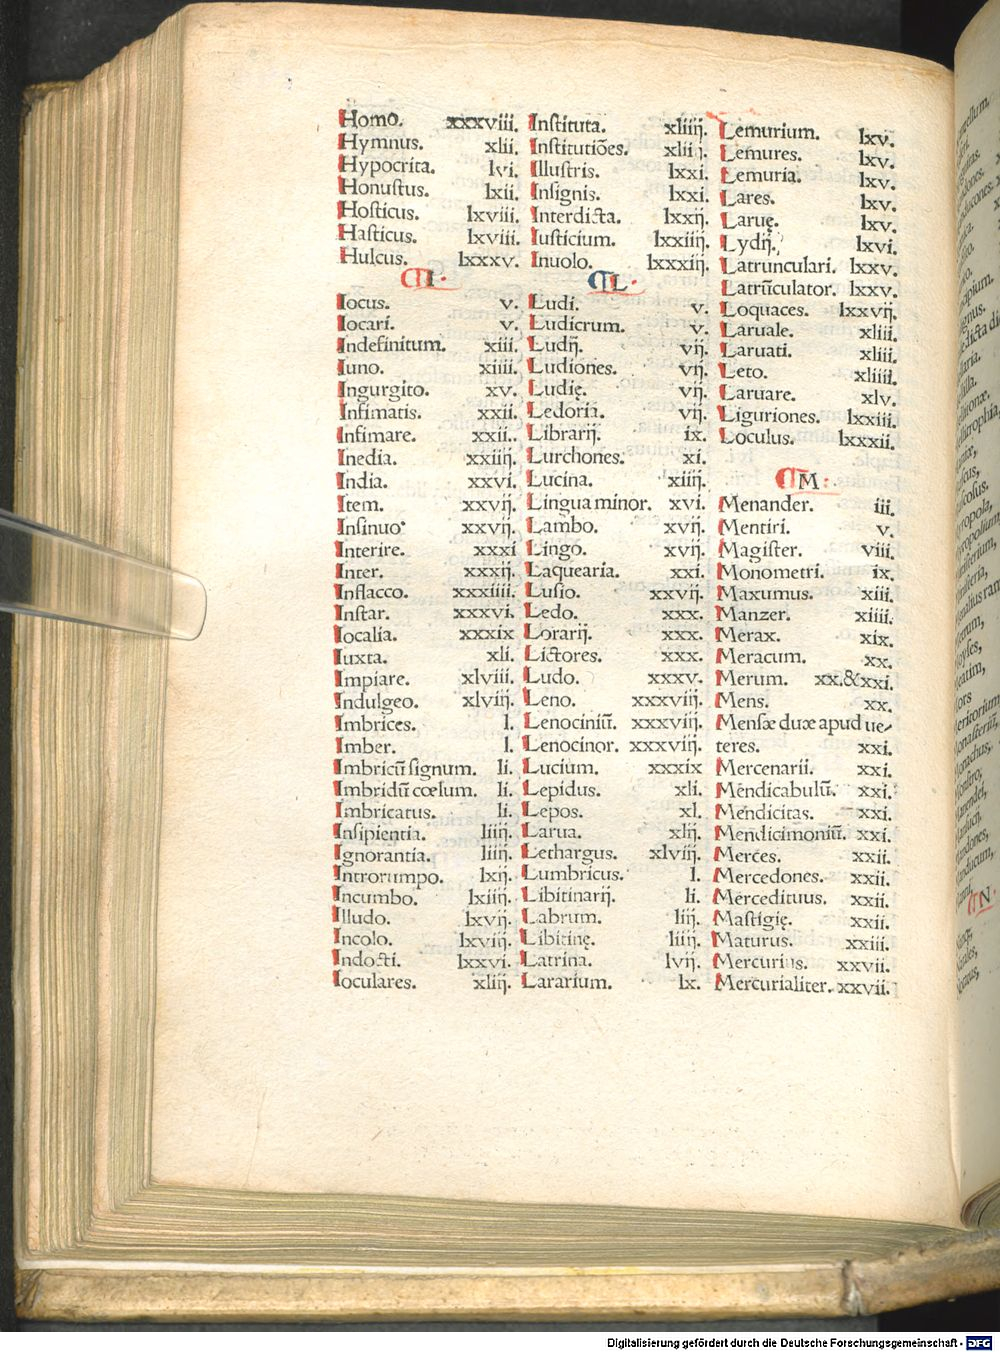 Homo. xxxviii.
Hymnus. xlii.
Hypocrita. lvi.
Honustus. lxii.
Hosticus. lxviii.
Hasticus. lxviii.
Hulcus. lxxxv.
I.
Iocus. v.
Iocari. v.
Indefinitum. xiii.
Iuno. xiiii.
Ingurgito. xv.
Infimatis. xxii.
Infimare. xxii.
Inedia. xxiiij.
India. xxvi.
Item. xxvij.
Insinuo. xxvij.
Interire. xxxi
Inter. xxxij.
Inflacco. xxxiiii.
Instar. xxxvi.
Iocalia. xxxix
Iuxta. xli.
Impiare. xlviii.
Indulgeo. xlviij.
Imbrices. l.
Imber. l.
Imbricū signum. li.
Imbridū cœlum. li.
Imbricatus. li.
Insipientia. liiij.
Ignorantia. liiij.
Introrumpo. lxij.
Incumbo. lxiiij.
Illudo. lxvij.
Incolo. lxviij.
Indocti. lxxvi.
Ioculares. xliij.
Instituta. xliiij.
Institutiões. xliiij.
Illustris. lxxi.
Insignis. lxxi.
Interdicta. lxxij.
Iusticium. lxxiiij.
Inuolo. lxxxiij.
L.
Ludi. v.
Ludicrum. v.
Ludij. vij.
Ludiones. vij.
Ludię. vij.
Ledoria. vij.
Librarij. ix.
Lurchones. xi.
Lucina. xiiij.
Lingua minor. xvi.
Lambo. xvij.
Lingo. xvij.
Laquearia. xxi.
Lusio. xxvij.
Ledo. xxx.
Lorarij. xxx.
Lictores. xxx.
Ludo. xxxv.
Leno. xxxviij.
Lenociniū. xxxviij.
Lenocinor. xxxviij.
Lucium. xxxix
Lepidus. xli.
Lepos. xl.
Larua. xlij.
Lethargus. xlviij.
Lumbricus. l.
Libitinarij. li.
Labrum. liij.
Libitinę. liiij.
Latrina. lvij.
Lararium. lx.
Lemurium. lxv.
Lemures. lxv.
Lemuria. lxv.
Lares. lxv.
Laruę. lxv.
Lydij. lxvi.
Latrunculari. lxxv.
Latrūculator. lxxv.
Loquaces. lxxvij.
Laruale. xliii.
Laruati. xliii.
Leto. xliiii.
Laruare. xlv.
Liguriones. lxxiii.
Loculus. lxxxii.
M.
Menander. iii.
Mentiri. v.
Magister. viii.
Monometri. ix.
Maxumus. xiii.
Manzer. xiiii.
Merax. xix.
Meracum. xx.
Merum. xx.&xxi.
Mens. xx.
Mensæ duæ apud ue-
teres. xxi.
Mercenarii. xxi.
Mēdicabulū. xxi.
Mēdicitas. xxi.
Mendicimoniū. xxi.
Merces. xxii.
Mercedones. xxii.
Mercedituus. xxii.
Mastigię. xxii.
Maturus. xxiii.
Mercurius. xxvii.
Mercurialiter. xxvii.
N.
Digitalisierung gefördert durch die Deutsche Forschungsgemeinschaft - DFG